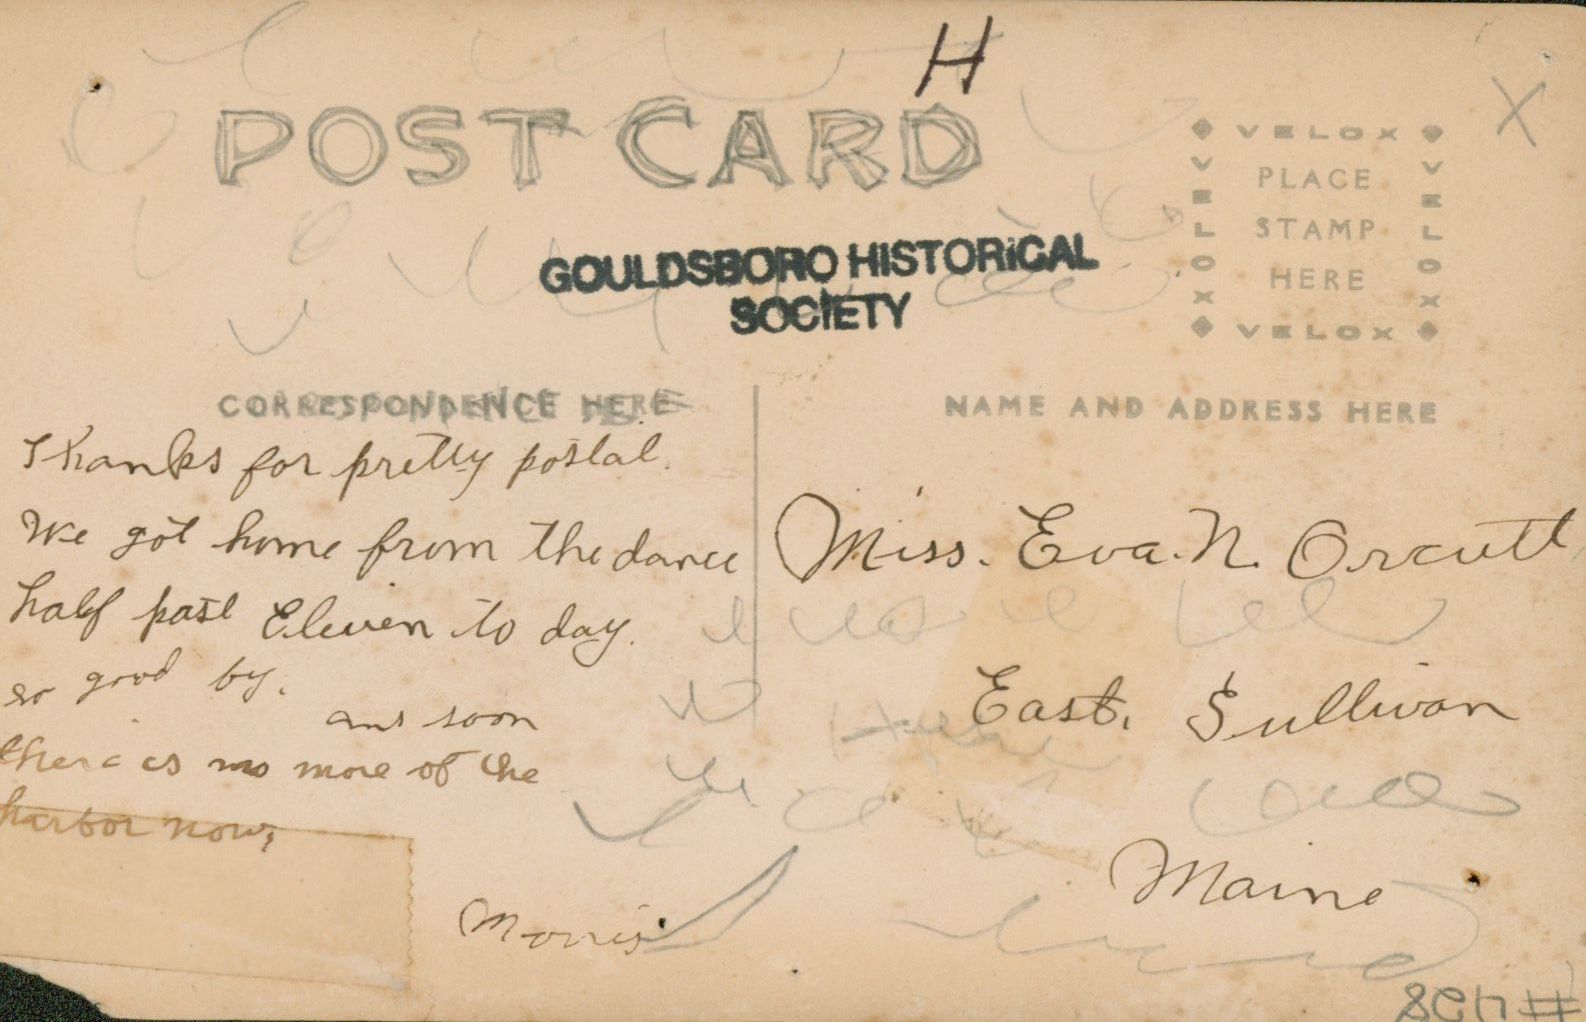 H
POST CARD
X
VELOX
PLACE
STAMP
HERE
VELOX
VELOX
VELOX
GOULDSBORO HISTORICAL
SOCIETY
CORRESPONDENCE HERE
NAME AND ADDRESS HERE
Thanks for pretty postal.
We got home from the dance
half past Eleven to day.
so good by.
and soon
there is no more of the
harbor now,
Morris
Miss. Eva. N. Orcutt
East. Sullivan
Maine